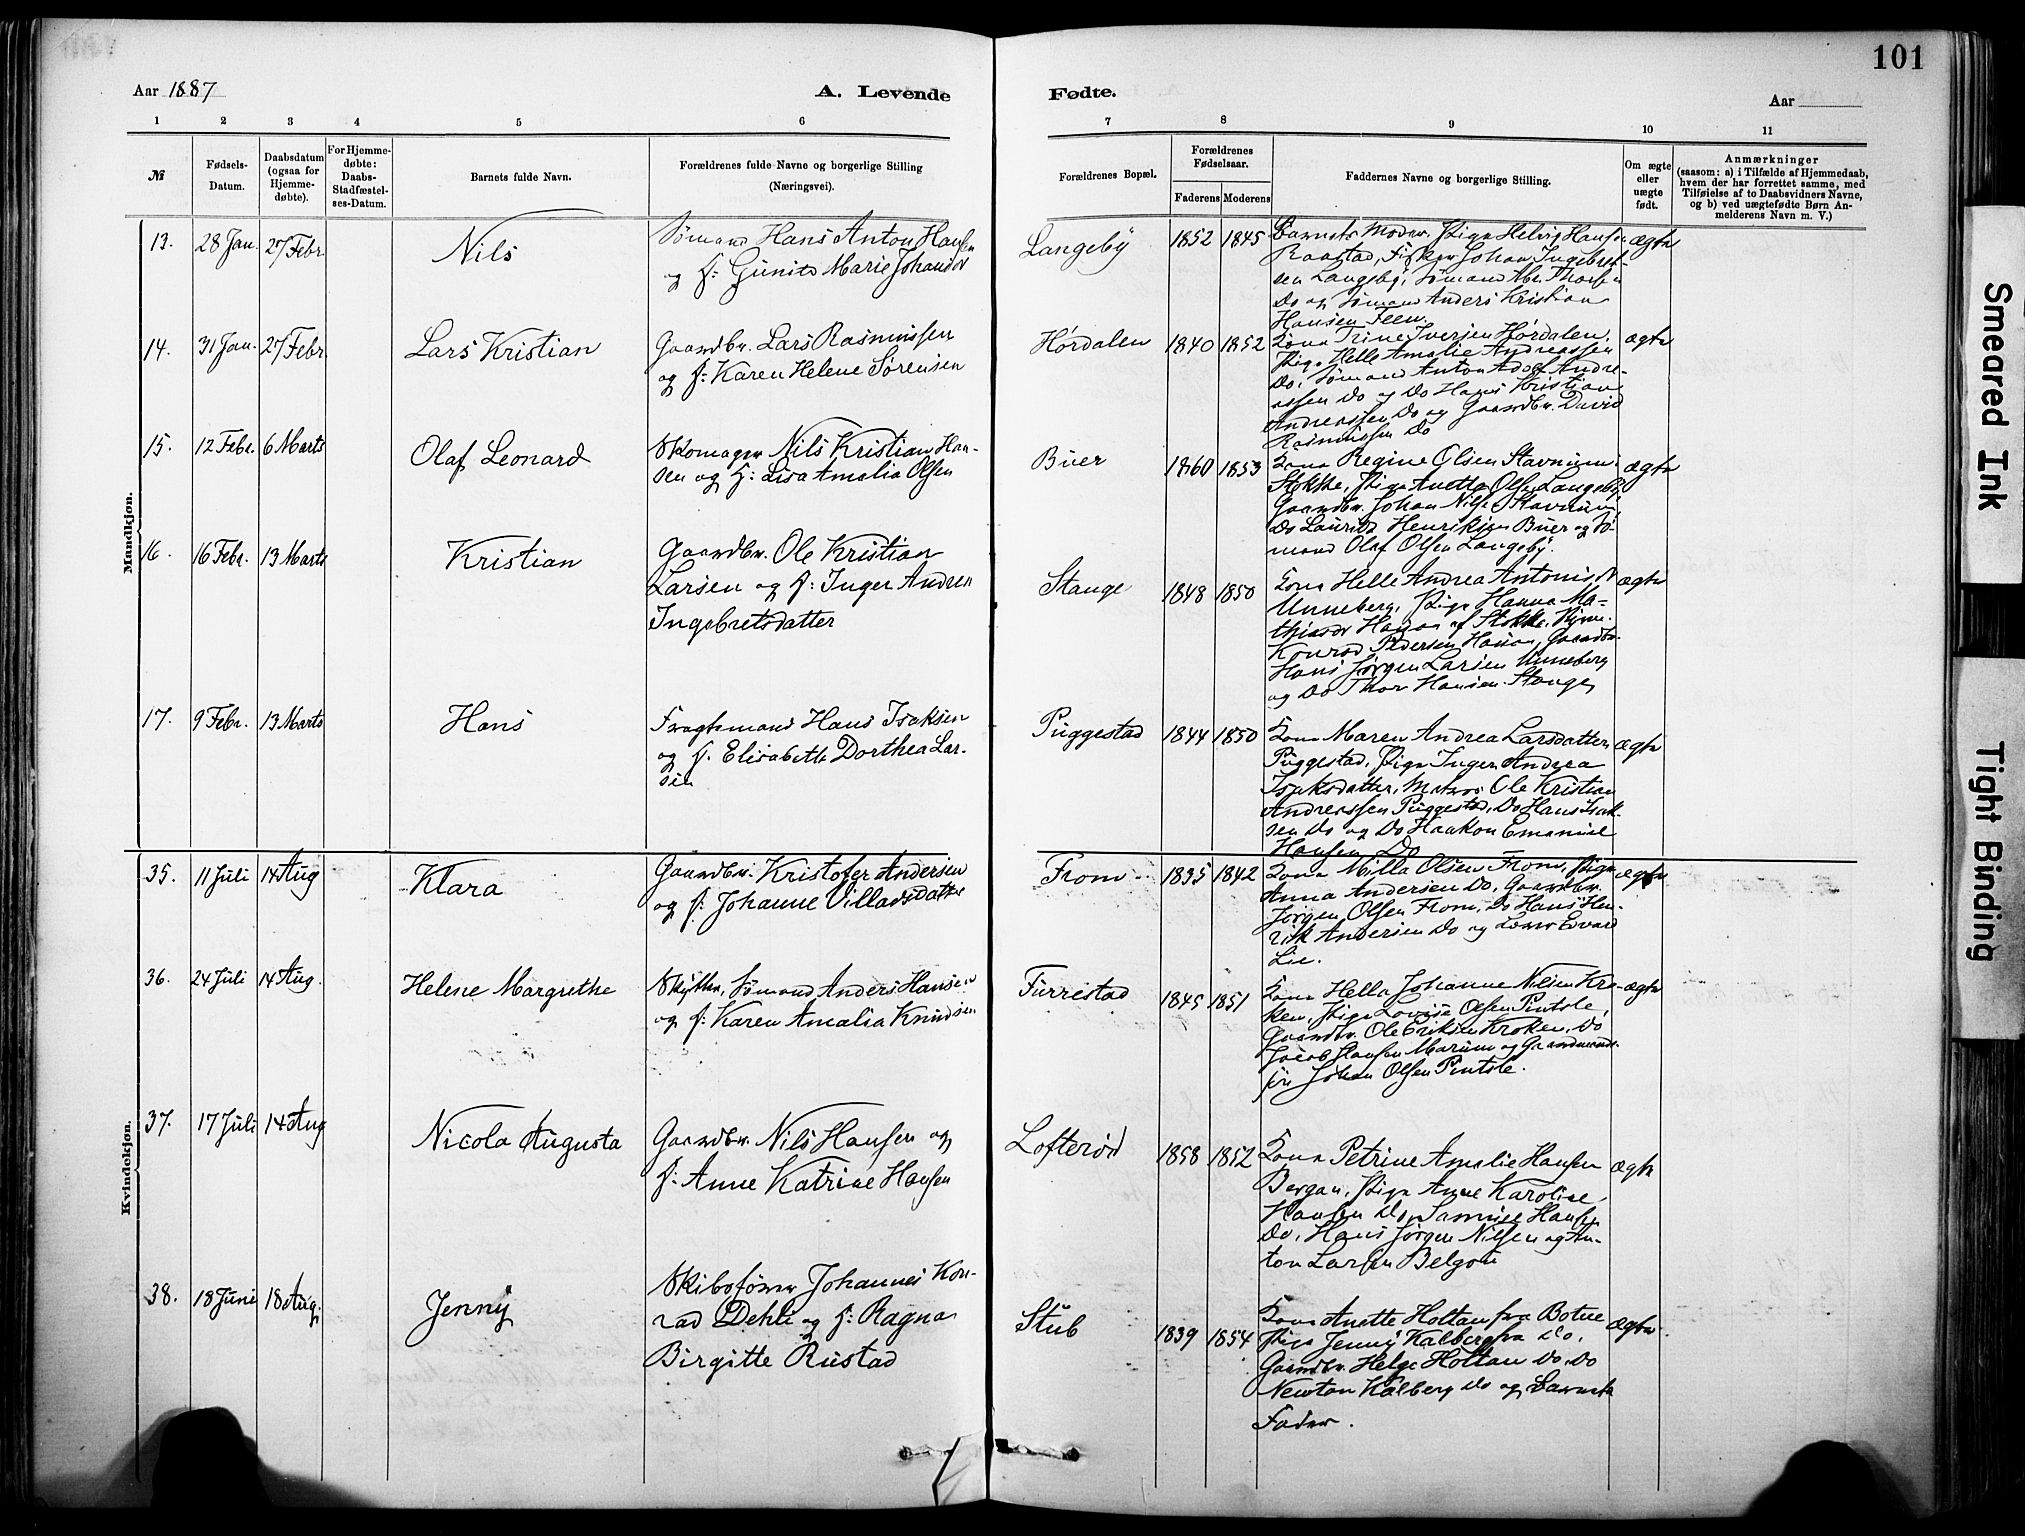 101
Aar 1887
A. Levende
Fødte.
Aar
1
2
3
4
5
6
7
8
9
10
11
№
Fødsels-
Datum.
Daabsdatum
(ogsaa for
Hjemme-
døbte).
For Hjemme-
døbte:
Daabs-
Stadfæstel-
ses-Datum.
Barnets fulde Navn.
Forældrenes fulde Navne og borgerlige Stilling
(Næringsvei).
Forældrenes Bopæl.
Forældrenes
Fødselsaar.
Faderens
Moderens
Faddernes Navne og borgerlige Stilling.
Om ægte
eller
uægte
født.
Anmærkninger
(saasom: a) i Tilfælde af Hjemmedaab,
hvem der har forrettet samme, med
Tilføielse af to Daabsvidners Navne,
og b) ved uægtefødte Børn An-
melderens Navn m. V.)
Mandkjøn.
13.
28 Jan.
27 Febr
Nils
Sømand Hans Anton Hansen
og h: Gunild Marie Johansdr
Langeby
1852
1845
Barnets Moder, Pige Helvig Hansen
Raastad, Fisker Johan Ingebret-
sen Langeby, Sømand Abr. Thorsen
Do og Sømand Anders Kristian
Hansen Feen.
ægte
14.
31 Jan.
27 Febr
Lars Kristian
Gaardbr. Lars Rasmussen
og h: Karen Helene Sørensen
Hørdalen
1840
1852
Kona Trine Iversen Hørdalen,
Pige Helle Amalie Andreassen
Do, Sømand Anton Adolf Andre-
assen Do og Do Hans Kristian
Andreassen Do og Gaardbr. David
Rasmussen Do
ægte
15.
12 Febr.
6 Marts
Olaf Leonard
Skomager Nils Kristian Han-
sen og h: Lisa Amalia Olsen
Buer
1860
1853
Kona Regine Olsen Stavnum
Stokke, Pige Anette Olsen Langeby,
Gaardbr. Johan Nilsen Stavnum,
Do Laurits Henriksen Buer og Sø-
mand Olaf Olsen Langeby.
ægte
16.
16 Febr.
13 Marts
Kristian
Gaardbr. Ole Kristian
Larsen og h: Inger Andrea
Ingebretsdatter
Stange
1848
1850
Kona Helle Andrea Antonisdr
Unneberg, Pige Hanna Ma-
thiasdr Haua af Stokke,
Konrad Pedersen Haua, Gaardbr.
Hans Jørgen Larsen Unneberg
og Do Thor Hansen Stange
ægte
17.
9 Febr.
13 Marts
Hans
Fragtemand Hans Isaksen
og h. Elisabeth Dorthea Lar-
sen
Puggestad
1844
1850
Kona Maren Andrea Larsdatter
Puggestad, Pige Inger Andrea
Isaksdatter, Matros Ole Kristian
Andreassen Puggestad, Do Hans Isak-
sen Do og Do Haakon Emanuel
Hansen Do
ægte
Kvindekjøn.
35.
11 Juli
14 Aug
Klara
Gaardbr. Kristofer Andersen
og h: Johanne Villadsdatter
From
1835
1842
Kona Milla Olsen From, Pige
Anna Andersen Do, Gaardbr.
Jørgen Olsen From, Do Hans Hen-
rik Andersen Do og Edvard
Lie.
ægte
36.
24 Juli
14 Aug.
Helene Margrethe
Skytter, Sømand Anders Hansen
og h: Karen Amalia Knudsen
Furrestad
1845
1851
Kona Hella Johanne Nilsen Kro-
ken, Pige Lovise Olsen Pintsle,
Gaardbr. Ole Eriksen Kroken, Do
Jacob Hansen Marum og Gaardmands-
søn Johan Olsen Pintsle.
ægte
37.
17 Juli
14 Aug
Nicola Augusta
Gaardbr. Nils Hansen og
h. Anne Katrine Hansen
Lofterød
1858
1852
Kona Petrine Amalie Hansen
Bergan, Pige Anne Karoline
Hansen Do, Samuel Hansen
Do, Hans Jørgen Nilsen og An-
ton Larsen Belgou
ægte
38.
18 Juni
18 Aug.
Jenny
Skibsfører Johannes Kon-
rad Dehli og h: Ragna
Birgitte Rustad
Stub
1839
1854
Kona Anette Holtan fra Botne
Pige Jenny Kalberg fra Do,
Gaardbr. Helge Holtan Do, Do
Newton Kalberg Do og Barnets
Fader.
ægte
Smeared Ink
Tight Binding